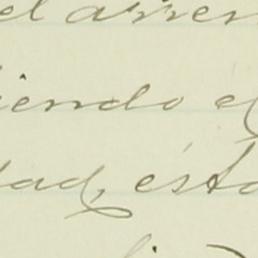 el arren
iendo e
dad, ésta